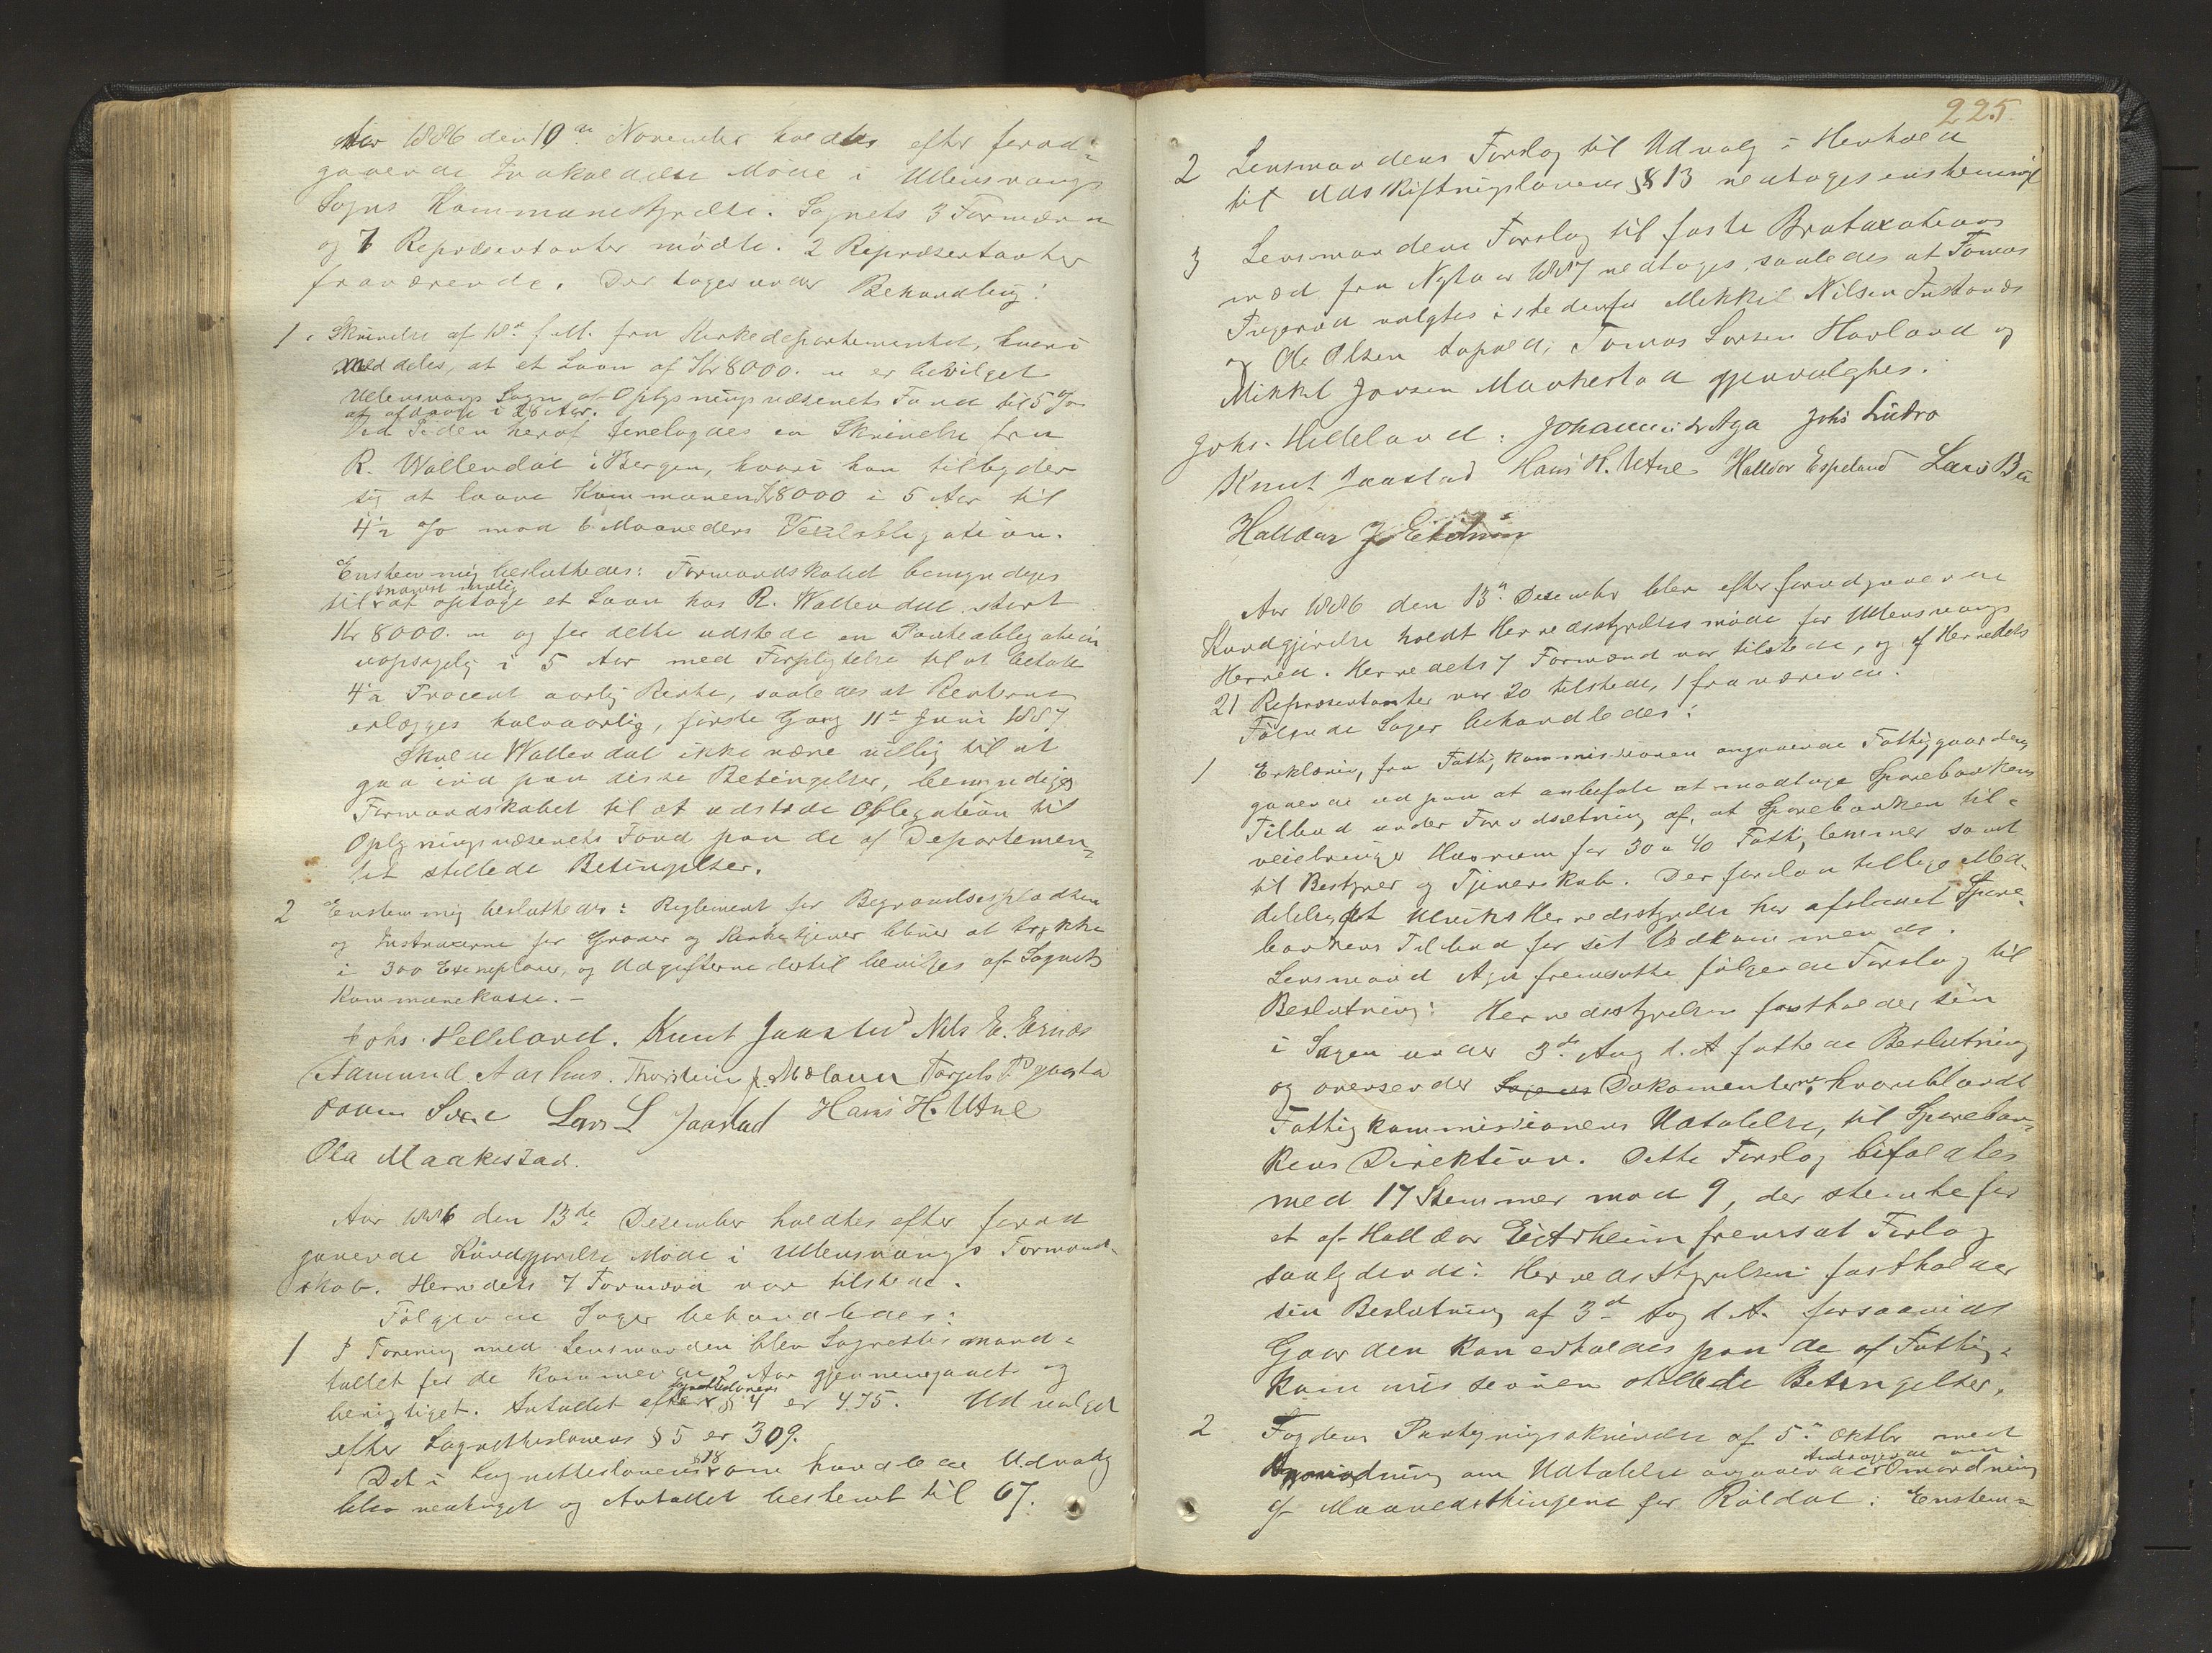 Aar 1886 den 10de November holdtes efter forud-
gaaende Indkaldelse Møde i Ullensvangs
Sogns Kommunestyrelse. Sognets 3 Formænd
og 7 Repræsentanter mødte. 2 Repræsentanter
fraværende. Der toges under Behandling:
1. Skrivelse af 18de f. M. fra Kirkedepartementet, hvori
meddeles, at et Laan af Kr 8000. er bevilget
Ullensvangs Sogn af Oplysningsvæsenets Fond til 5 %
at afdrage i 28 Aar.
Ved Siden heraf forelagdes en Skrivelse fra
R. Wallendal i Bergen, hvori han tilbyder
sig at laane Kommunen Kr 8000 i 5 Aar til
4½ % mod 6 Maaneders Vexelobligation.
Enstemmig besluttedes: Formandskabet bemyndiges
til snarest mulig at optage et Laan hos R. Wallendal stort
Kr 8000. og for dette udstede en Panteobligation
uopsigelig i 5 Aar med Forpligtelse til at betale
4½ Procent aarlig Rente, saaledes at Renterne
erlægges halvaarlig, første Gang 11te Juni 1887
Skulde Wallendal ikke være villig til at
gaa ind paa disse Betingelser, bemyndiges
Formandskabet til at udstede Obligation til
Oplysningsvæsenets Fond paa de af Departemen-
tet stillede Betingelser.
2 Enstemmig besluttedes: Reglement for Begravelsespladsen
og Instruxerne for Graver og Kirketjener bliver at trykke
i 300 Exemplarer, og Udgifterne dertil bevilges af Sognets
Kommunekasse. –
Johs. Helleland. Knut Jaastad Nils E. Ernæs
Aamund Aarhus. Thorstein J. Mælann Torgels
Lars L Jaastad Hans H. Utne
Ola Maakestad.
Aar 1886 den 13de Desember holdtes efter forud
gaaende Kundgjørelse Møde i Ullensvangs Formand-
skab. Herredets 7 Formænd var tilstede.
Følgende Sager behandledes:
1 I Forening med Lensmanden blev Lagrettesmand-
tallet for de kommende 2 Aar gjennemgaaet og
berigtiget. Antallet efter Lagretteslovens § 4 er 475. Udvalget
efter Lagretteslovens § 5 er 309.
Det i Lagretteslovens § 18 omhandlede Udvalg
blev nedtaget og Antallet bestemt til 67.
225
2 Lensmandens Forslag til Udvalg i Henhold
til Udskiftningslovens § 13 vedtoges enstemmigt
3 Lensmandens Forslag til faste Brataxations
mænd fra Nytaar 1887 vedtoges, saaledes at Tomas
valgtes istedenfor Mikkel Nilsen
og Ole Olsen Lofald; Tomas Larsen Hovland og
Mikkel Jonsen Maakestad gjenvalgtes.
Johs. Helleland. Johannes L Aga Johs Lutro
Knut Jaastad Hans H. Utne Halldor Espeland Lars
Halldor J. Eitrheim
Aar 1886 den 13de Desember blev efter forudgaaende
Kundgjørelse holdt Herredsstyrelsesmøde for Ullensvangs
Herred. Herredets 7 Formænd var tilstede, og af Herredets
21 Repræsentanter var 20 tilstede, 1 fraværende.
Følgende Sager behandledes:
1 Erklæring fra Fattigkommissionen angaaende Fattiggaarden
gaaende ud paa at anbefale at modtage Sparebankens
Tilbud under Forudsætning af, at Sparebanken til-
veiebringer Husrum for 30 a 40 Fattiglemmer samt
til Bestyrer og Tjenerskab. Der forelaa tillige Med-
delelse at Ulviks Herredsstyrelse har afslaaet Spare-
bankens Tilbud for sit Vedkommende.
Lensmand Aga fremsatte følgende Forslag til
Beslutning: Herredsstyrelsen fastholder sin
i Sagen under 3de Aug d. A. fattede Beslutning
og oversender Sagens Dokumenterne, hvoriblandt
Fattigkommissionens Udtalelse, til Spareban-
kens Direktion. Dette Forslag bifaldtes
med 17 Stemmer mod 9, der stemte for
et af Halldor Eitrheim fremsat Forslag
saalydende: Herredsstyrelsen fastholder
sin Beslutning af 3de Aug d. A. forsaavidt
Gaarden kan erholdes paa de af Fattig-
kommissionen stillede Betingelser.
2 Fogdens Paategningsskrivelse af 5te Oktbr med
Anmodning om Udtalelse angaaende Andragende om Omordning
af Maanedsthingene for Røldal: Enstem-